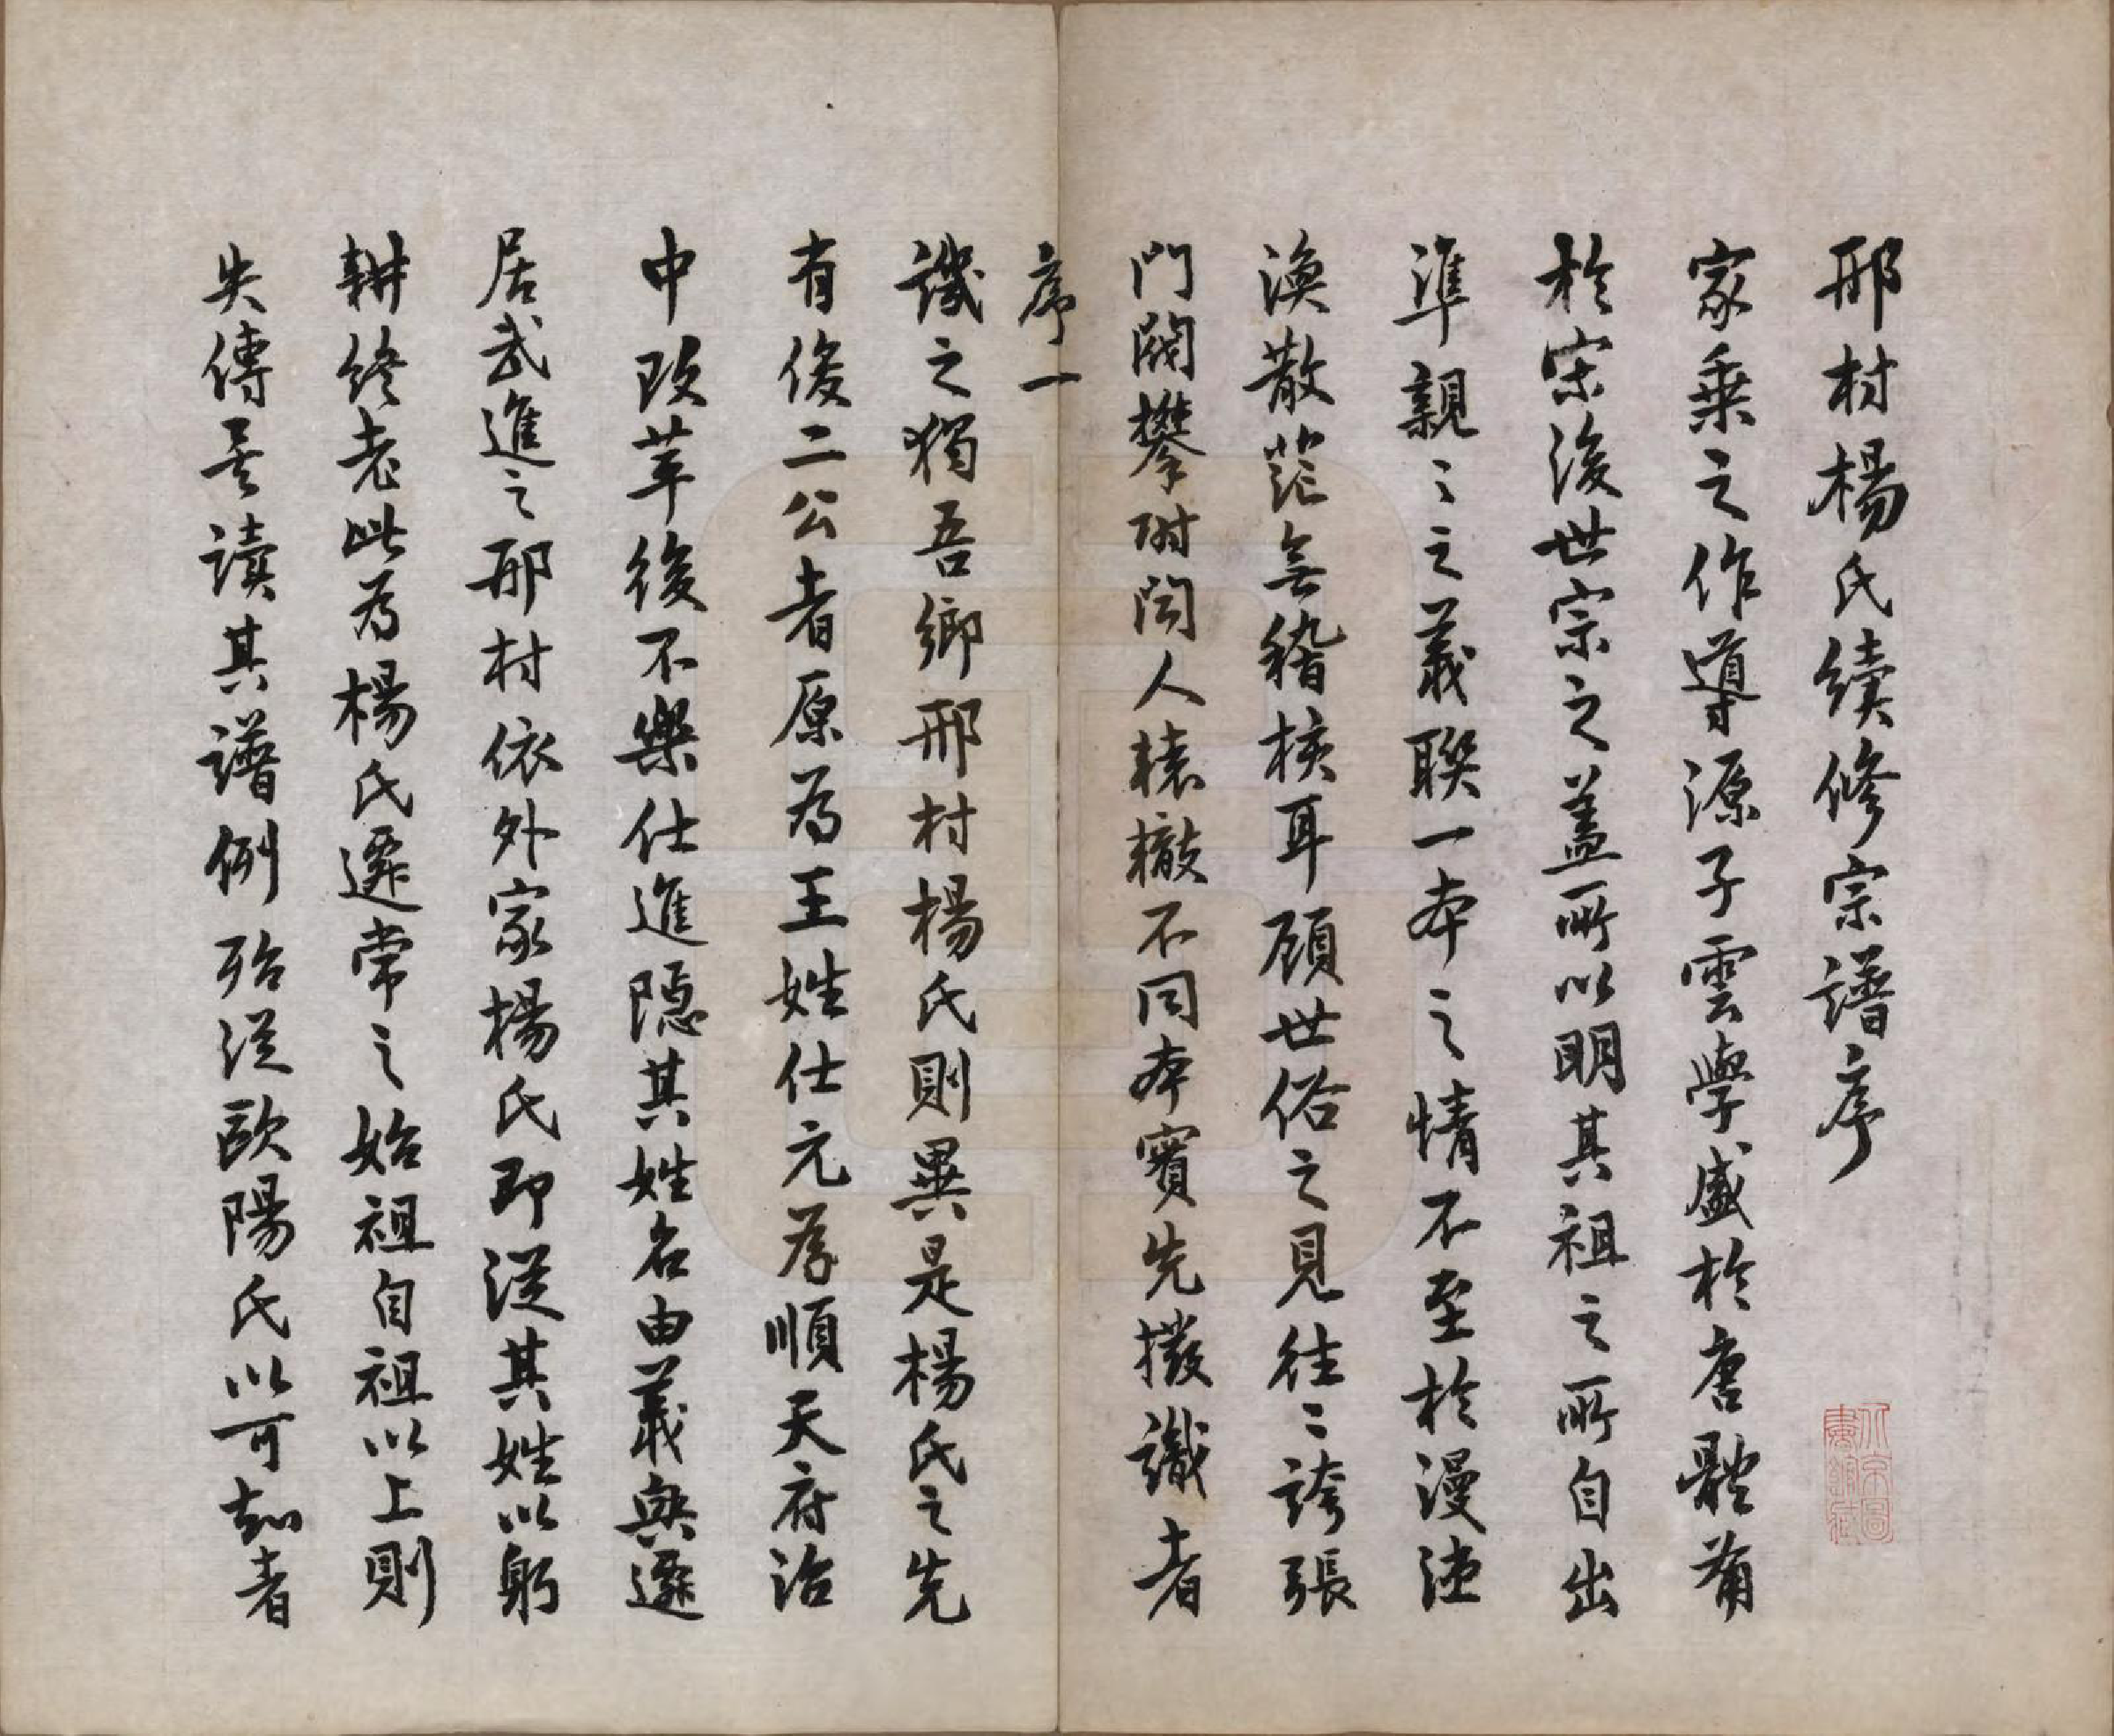 邢村楊氏續修宗譜序
家乘之作導源子雲學盛於唐體備
於宋後世宗之蓋所以明其祖之所自出
準親〻之義聯一本之情不至於漫漶
渙散茫無稽核耳顧世俗之見往〻誇張
門閥攀附聞人轅轍不同本實先撥識者
序一
譏之獨吾鄉邢村楊氏則異是楊氏之先
有俊二公者原為王姓仕元為順天府治
中改革後不樂仕進隱其姓名由義興遷
居武進之邢村依外家楊氏即從其姓以躬
耕終老此為楊氏遷常之始祖自祖以上則
失傳焉讀其譜例殆從歐陽氏以可知者